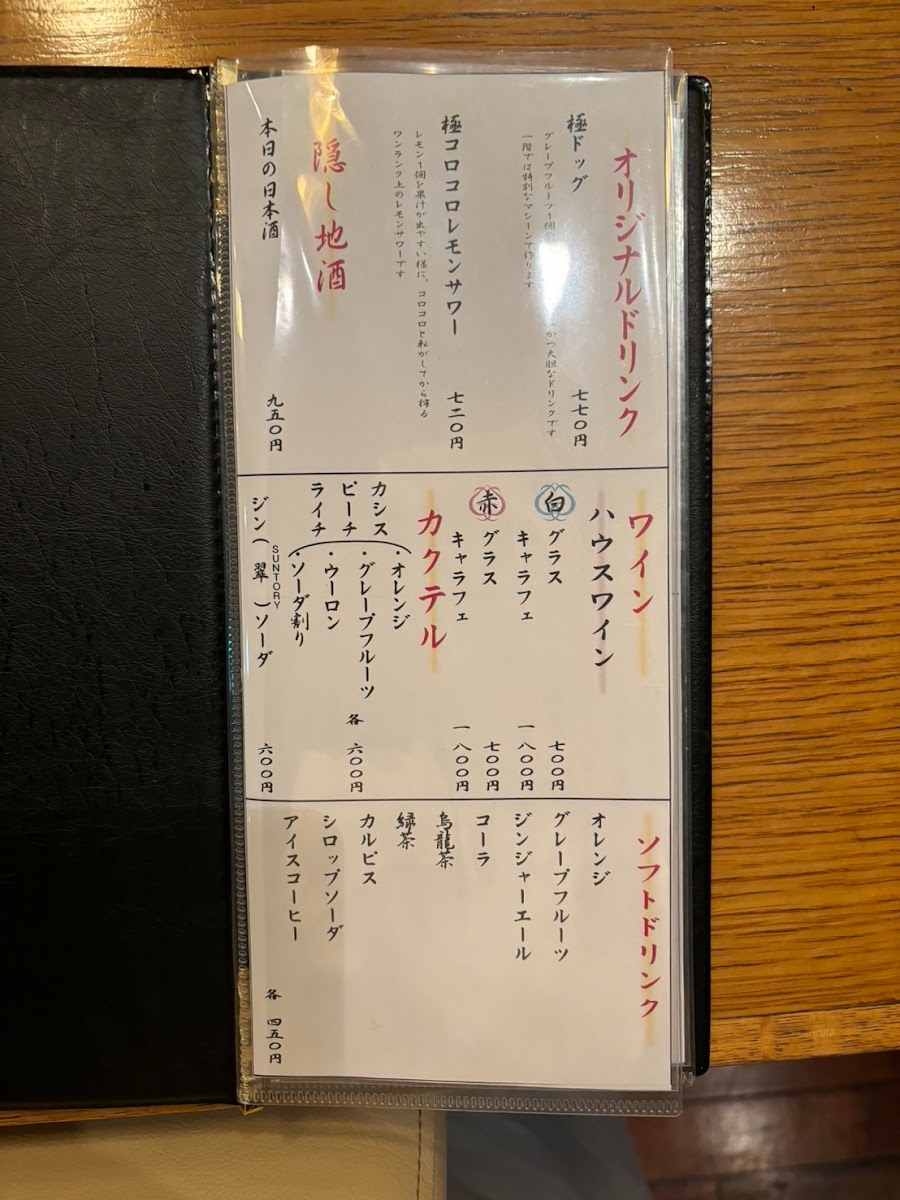 オリジナルドリンク
極ドッグ
七七〇円
グレープフルーツ1個
かつ大胆なドリンクです
一階では特別なマシーンで作ります
極コロコロレモンサワー
七二〇円
レモン1個を果汁が出やすい様に、コロコロと転がしてから搾る
ワンランク上のレモンサワーです
隠し地酒
本日の日本酒
九五〇円
ワイン
ハウスワイン
白 グラス
七〇〇円
キャラフェ
一八〇〇円
赤 グラス
七〇〇円
キャラフェ
一八〇〇円
カクテル
カシス
ピーチ
ライチ
・オレンジ
・グレープフルーツ
・ウーロン
・ソーダ割り
各 六〇〇円
ジン(翠)ソーダ
SUNTORY
六〇〇円
ソフトドリンク
オレンジ
グレープフルーツ
ジンジャーエール
コーラ
烏龍茶
緑茶
カルピス
シロップソーダ
アイスコーヒー
各 四五〇円